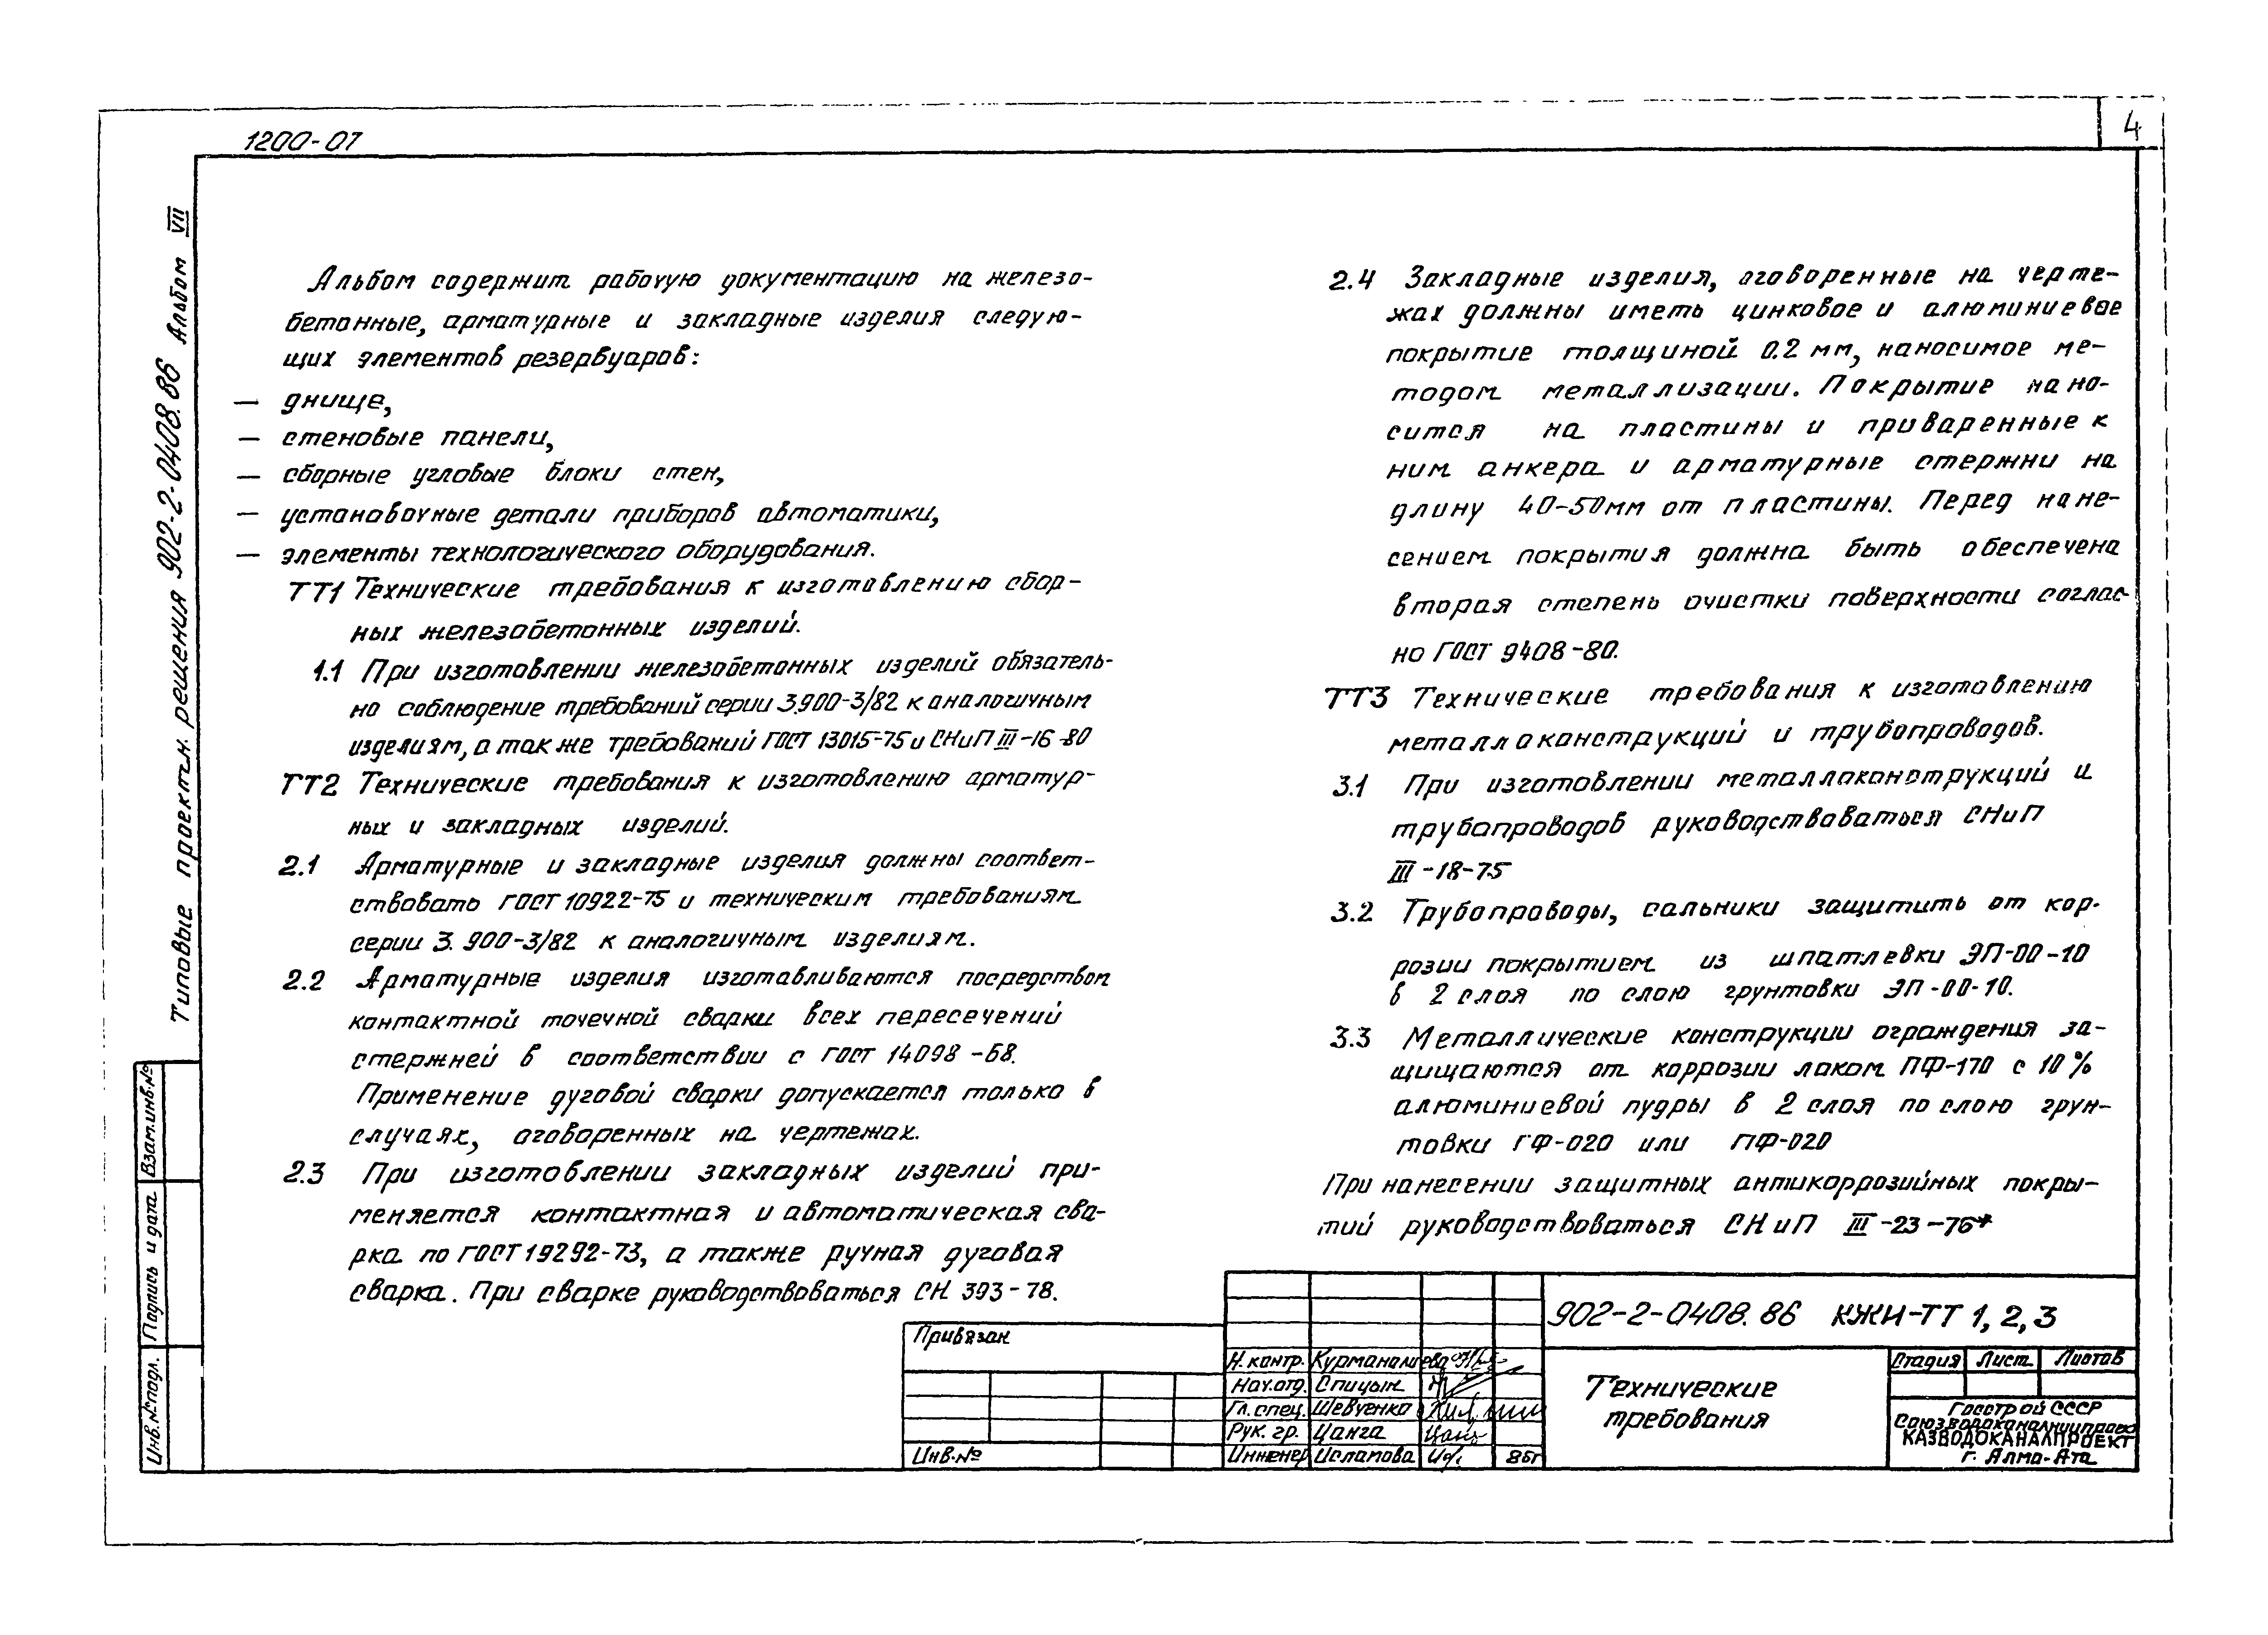 1200-07
4
Типовые проектн. решения 902-2-0408.86 Альбом VII
Альбом содержит рабочую документацию на железо-
бетонные, арматурные и закладные изделия следую-
щих элементов резервуаров:
— днище,
— стеновые панели,
— сборные угловые блоки стен,
— установочные детали приборов автоматики,
— элементы технологического оборудования.
ТТ1 Технические требования к изготовлению сбор-
ных железобетонных изделий.
1.1 При изготовлении железобетонных изделий обязатель-
но соблюдение требований серии 3.900-3/82 к аналогичным
изделиям, а также требований ГОСТ 13015-75 и СНиП III-16-80
ТТ2 Технические требования к изготовлению арматур-
ных и закладных изделий.
2.1 Арматурные и закладные изделия должны соответ-
ствовать ГОСТ 10922-75 и техническим требованиям
серии 3.900-3/82 к аналогичным изделиям.
2.2 Арматурные изделия изготавливаются посредством
контактной точечной сварки всех пересечений
стержней в соответствии с ГОСТ 14098-68.
Применение дуговой сварки допускается только в
случаях, оговоренных на чертежах.
2.3 При изготовлении закладных изделий при-
меняется контактная и автоматическая сва-
рка по ГОСТ 19292-73, а также ручная дуговая
сварка. При сварке руководствоваться СН 393-78.
2.4 Закладные изделия, оговоренные на черте-
жах должны иметь цинковое и алюминиевое
покрытие толщиной 0.2 мм, наносимое ме-
тодом металлизации. Покрытие нано-
сится на пластины и приваренные к
ним анкера и арматурные стержни на
длину 40-50мм от пластины. Перед нане-
сением покрытия должна быть обеспечена
вторая степень очистки поверхности соглас-
но ГОСТ 9408-80.
ТТ3 Технические требования к изготовлению
металлоконструкций и трубопроводов.
3.1 При изготовлении металлоконструкций и
трубопроводов руководствоваться СНиП
III-18-75
3.2 Трубопроводы, сальники защитить от кор-
розии покрытием из шпатлевки ЭП-00-10
в 2 слоя по слою грунтовки ЭП-00-10.
3.3 Металлические конструкции ограждения за-
щищаются от коррозии лаком ПФ-170 с 10%
алюминиевой пудры в 2 слоя по слою грун-
товки ГФ-020 или ПФ-020
При нанесении защитных антикоррозийных покры-
тий руководствоваться СНиП III-23-76*
Взам.инв.№
Подпись и дата
Инв.№подл.
Привязан
Инв.№
Н.контр. Курманалиева
Нач.отд. Спицын
Гл.спец. Шевченко
Рук. гр. Цанга Цанг
Инженер Исламова 86г
902-2-0408.86 КЖИ-ТТ 1,2,3
Технические
требования
Стадия Лист Листов
Госстрой СССР
Союзводоканалниипроект
КАЗВОДОКАНАЛПРОЕКТ
г. Алма-Ата